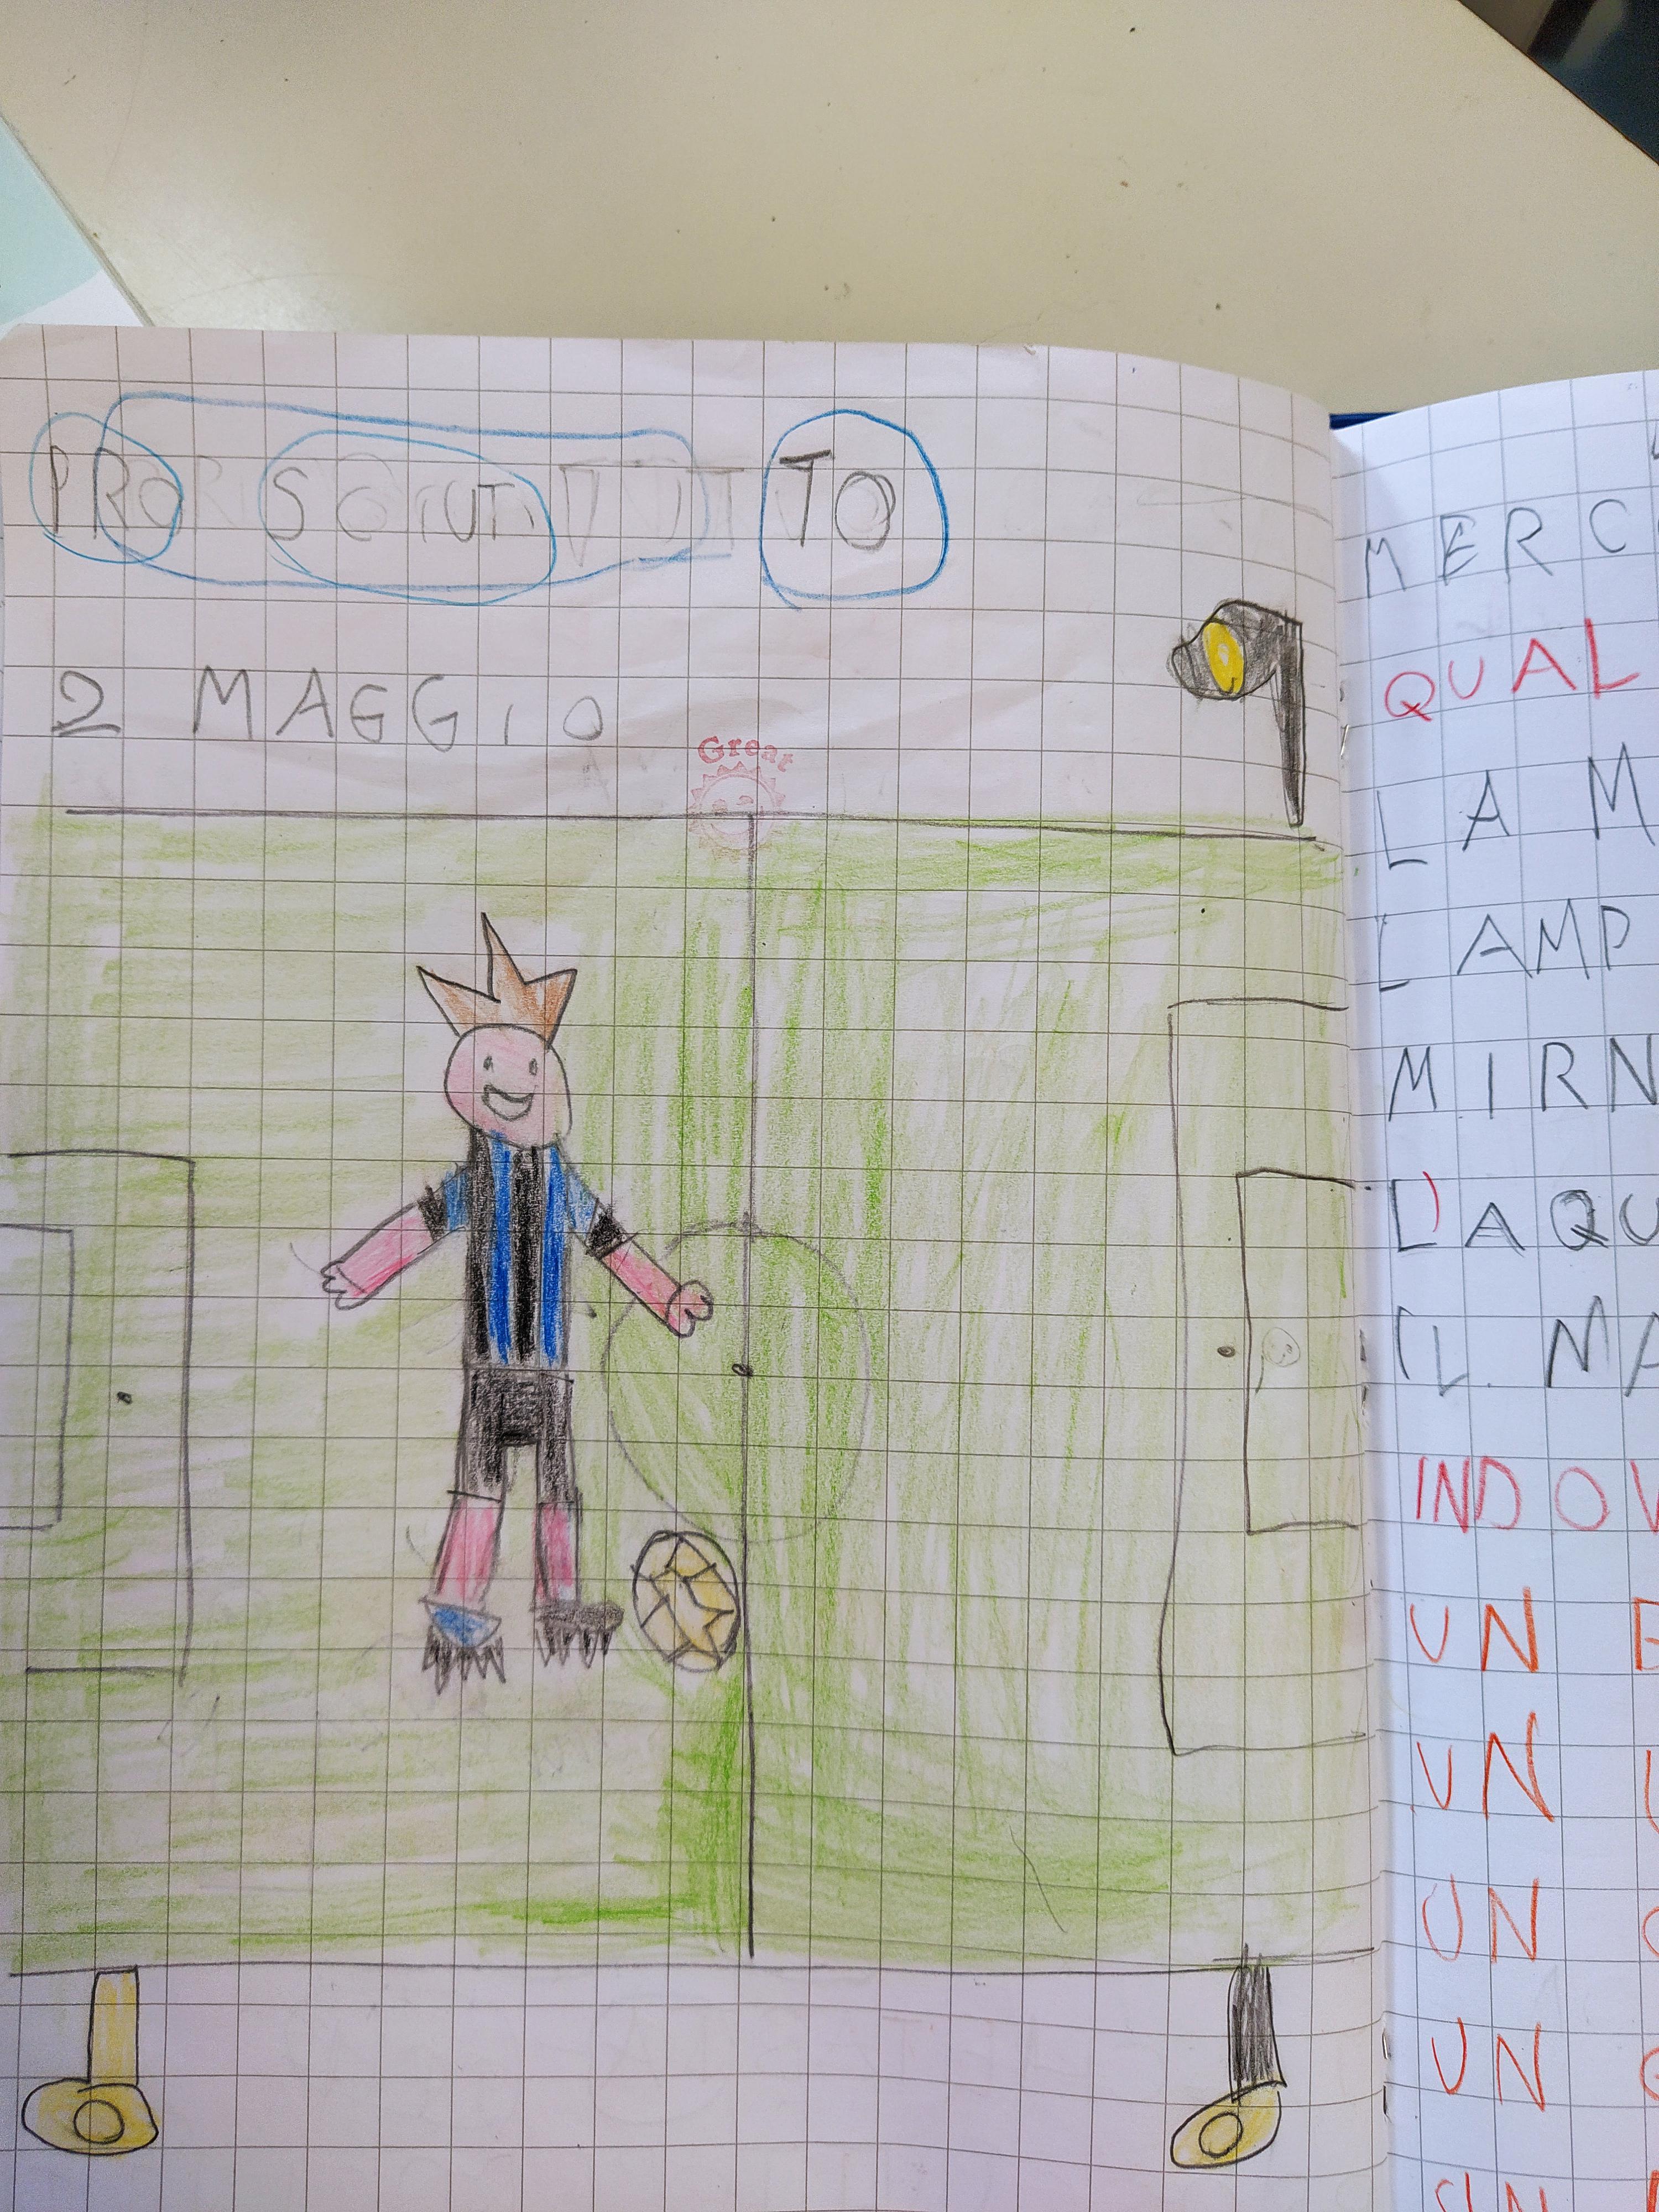 PRO SCIUT TO
2 MAGGIO
Great
MERC
QUAL
LA M
LAMP
MIRN
L'AQU
IL MA
INDOV
UN
UN
UN
UN
UN